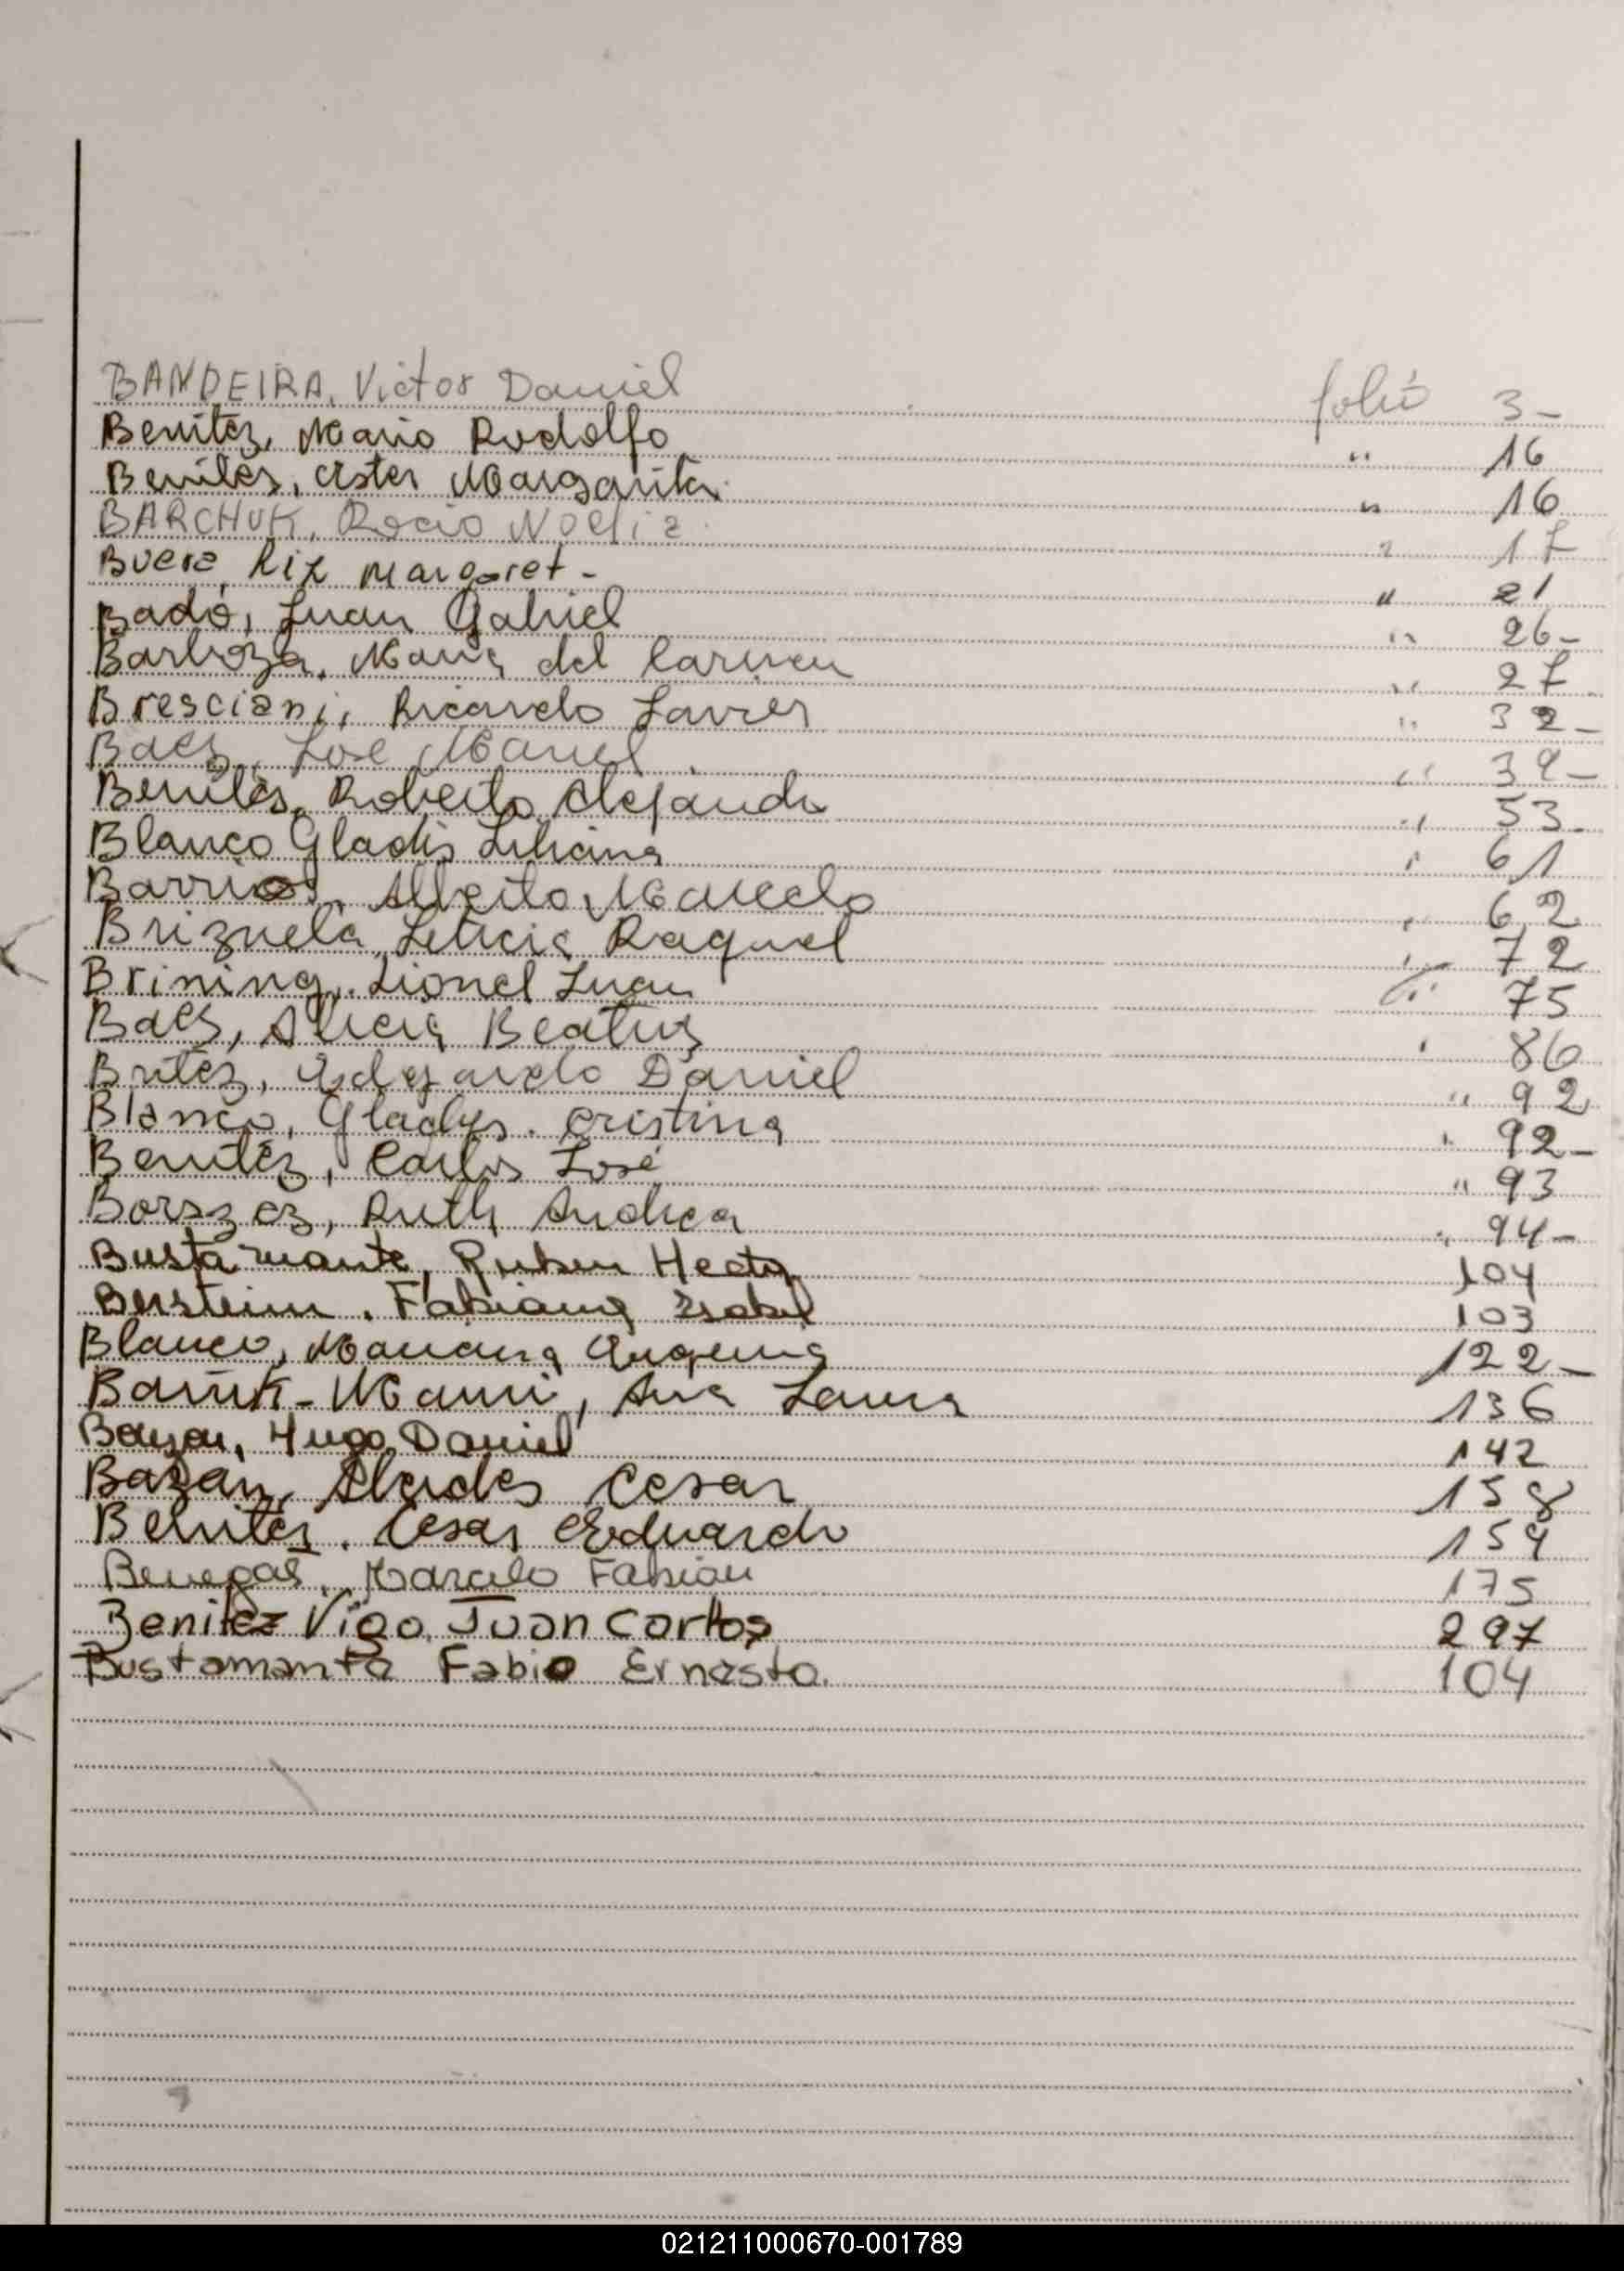 BANDEIRA, Victor Daniel folio 3-
Benitez, Mario Rodolfo " 16
Benitez, Ester Margarita " 16
BARCHUK, Rocio Noelia " 17
Buera, Liz Margaret - " 21
Badó, Juan Gabriel " 26-
Barboza, Maria del Carmen " 27
Bresciani, Ricardo Javier " 32-
Baez, José Manuel " 39-
Benitez, Roberto Alejandro " 53-
Blanco Gladis Liliana " 61
Barrios, Alberto Marcelo " 62
Brizuela, Leticia Raquel " 72
Brining, Lionel Juan " 75
Baez, Alicia Beatriz " 86
Britez, Edgardo Daniel " 92
Blanco, Gladys Cristina " 92-
Benitez, Carlos José " 93
Borszez, Ruth Andrea " 94-
Bustamante, Ruben Hector 104
Berstein, Fabiana Isabel 103
Blanco, Mariana Eugenia 122-
Ana Laura 136
Hugo Daniel 142
Bazán, Alcides Cesar 158
Benitez, Cesar Eduardo 159
Benegas, Marcelo Fabian 175
Benitez Vigo, Juan Carlos 297
Bustamante Fabio Ernesto. 104
021211000670-001789